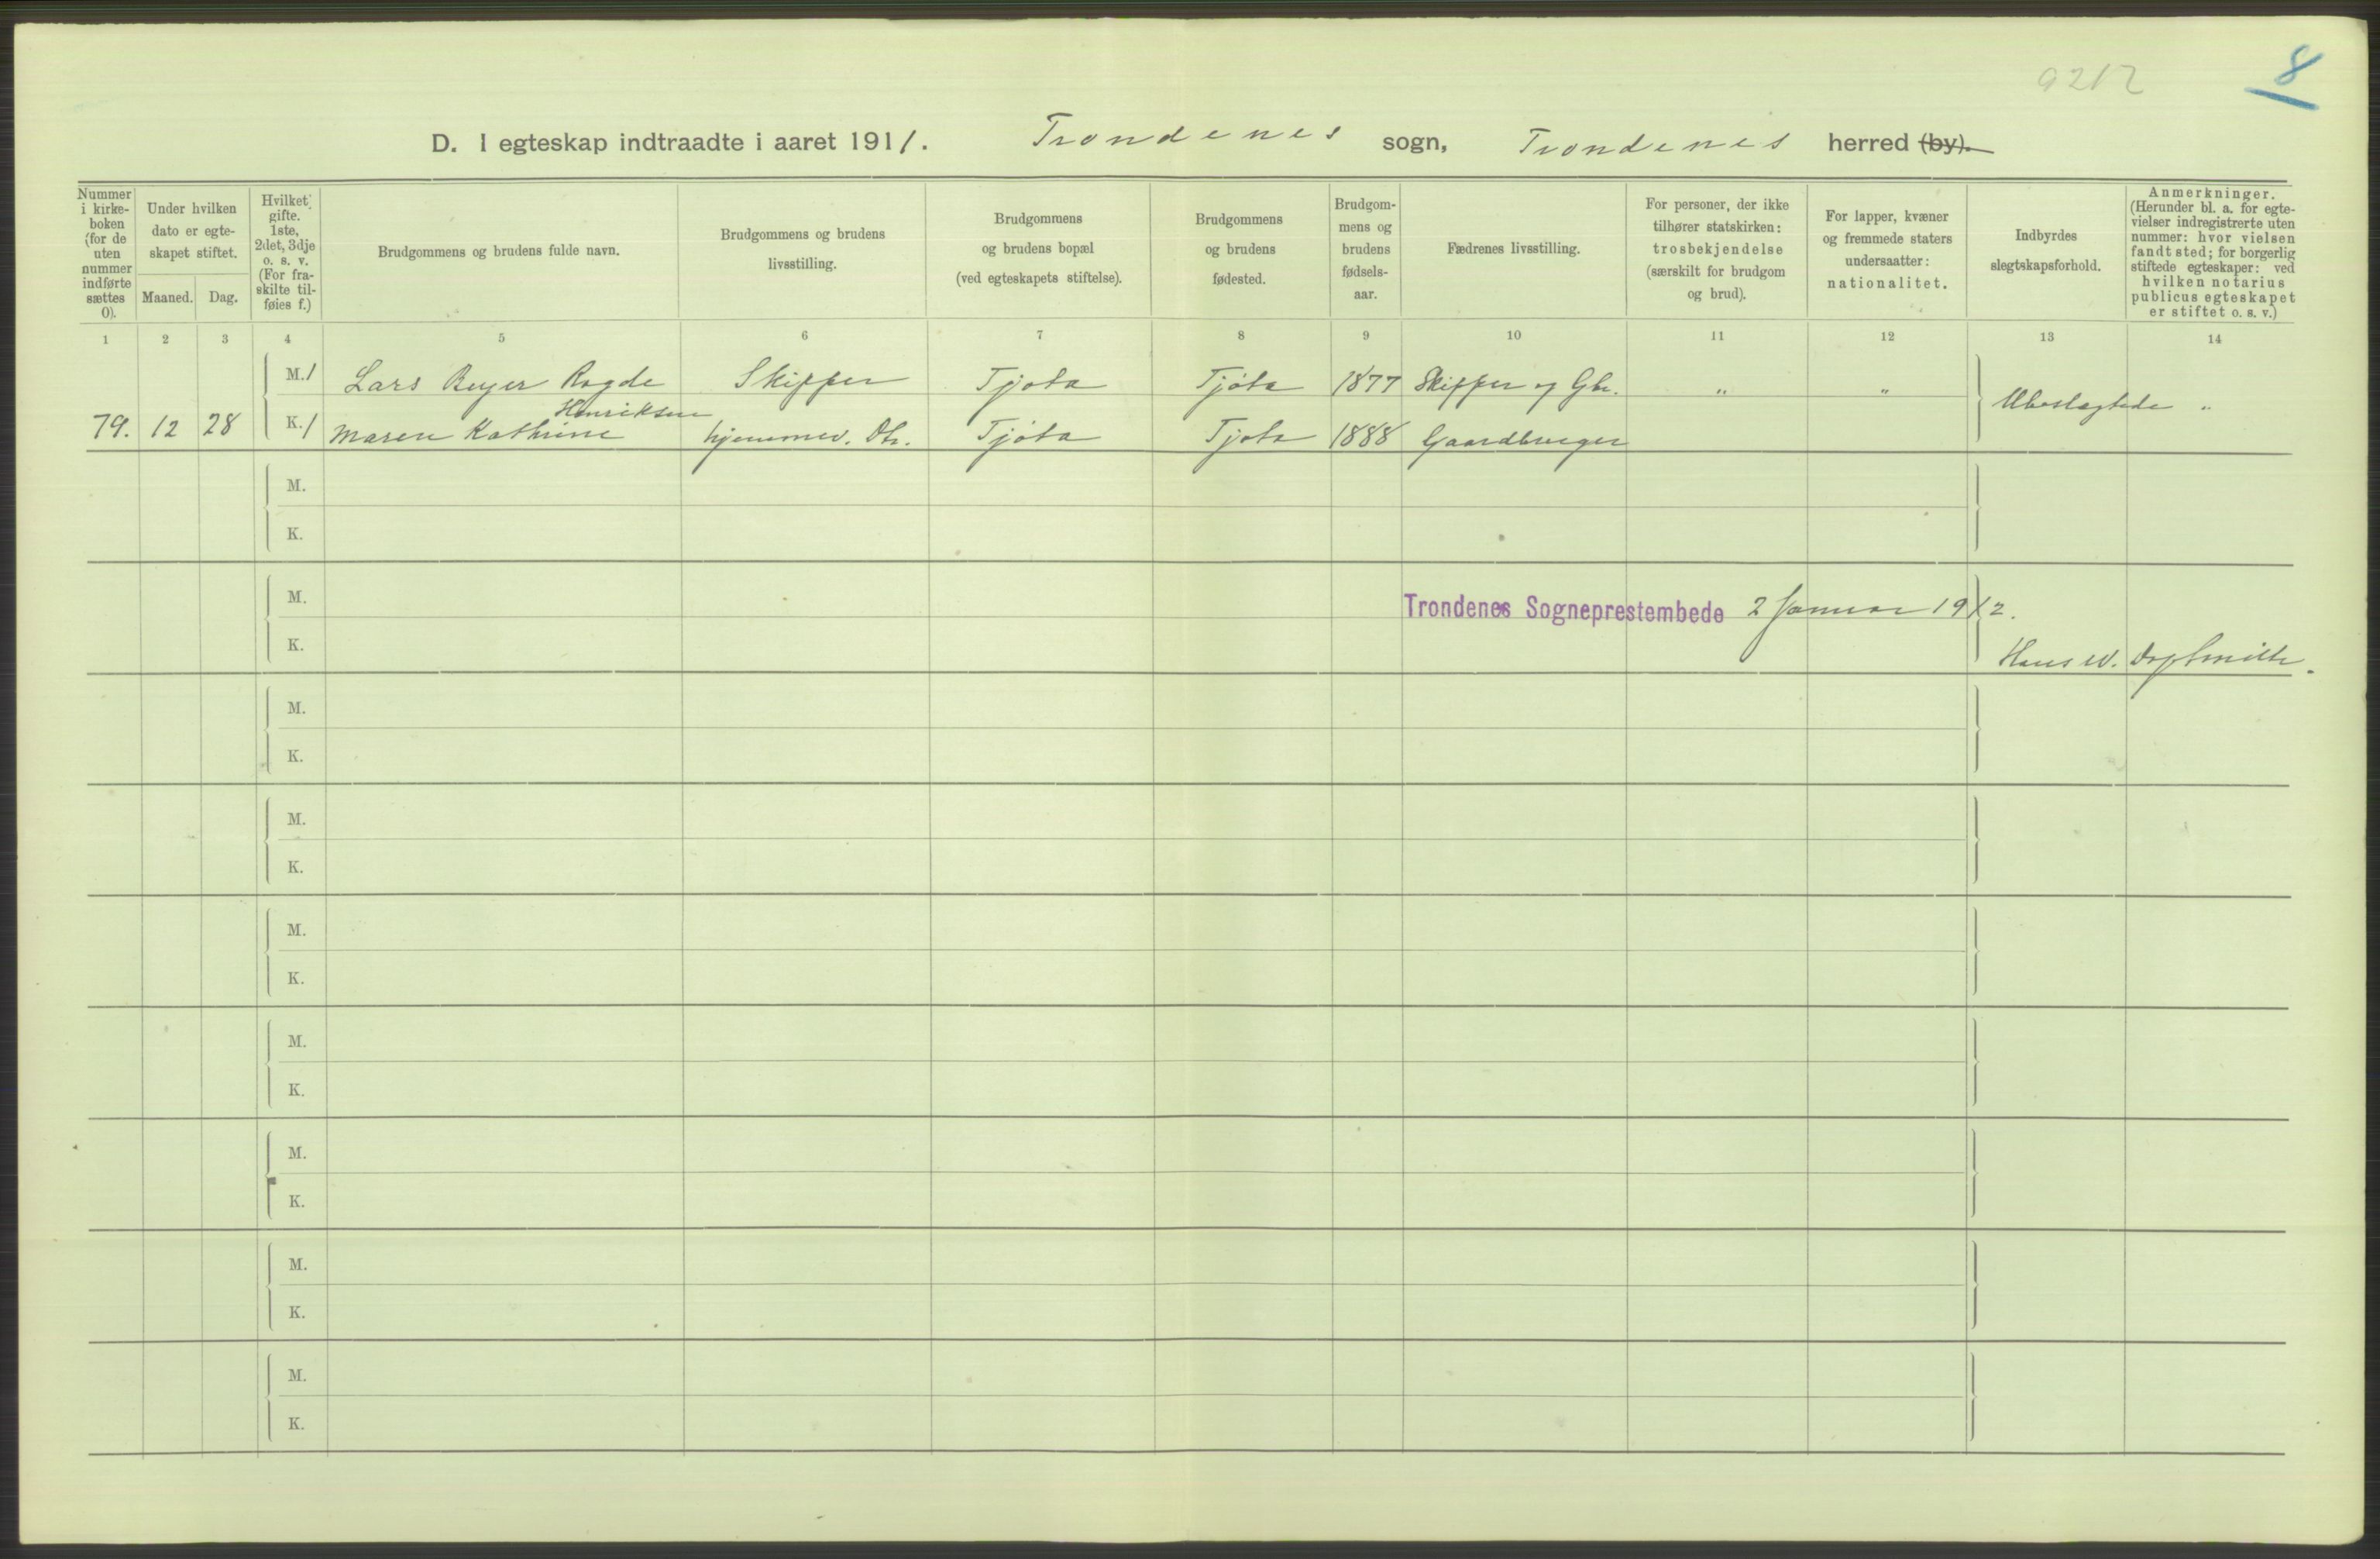 9212 8
D. I egteskap indtraadte i aaret 1911. Trondenes sogn, Trondenes herred (by).
Nummer i kirke- boken (for de uten nummer indførte sættes 0).
Under hvilken dato er egte- skapet stiftet.
Maaned. Dag.
Hvilket gifte. 1ste, 2det, 3dje o. s. v. (For fra- skilte til- føies f.)
Brudgommens og brudens fulde navn.
Brudgommens og brudens livsstilling.
Brudgommens og brudens bopæl (ved egteskapets stiftelse).
Brudgommens og brudens fødested.
Brudgom- mens og brudens fødsels- aar.
Fædrenes livsstilling.
For personer, der ikke tilhører statskirken: trosbekjendelse (særskilt for brudgom og brud).
For lapper, kvæner og fremmede staters undersaatter: nationalitet.
Indbyrdes slegtskapsforhold.
Anmerkninger. (Herunder bl. a. for egte- vielser indregistrerte uten nummer: hvor vielsen fandt sted; for borgerlig stiftede egteskaper: ved hvilken notarius publicus egteskapet er stiftet o. s. v.)
1 2 3 4 5 6 7 8 9 10 11 12 13 14
M. 1 Lars Beyer Rogde Skipper Tjøta Tjøta 1877 Skipper og Gbr. " "
Ubeslegtede "
Henriksen
79. 12 28 K. 1 Maren Kathrine hjemmev. Dtr. Tjøta Tjøta 1888 Gaardbruger
M.
K.
M.
Trondenes Sogneprestembede 2 Januar 1912.
K.
Hans W.
M.
K.
M.
K.
M.
K.
M.
K.
M.
K.
M.
K.
M.
K.